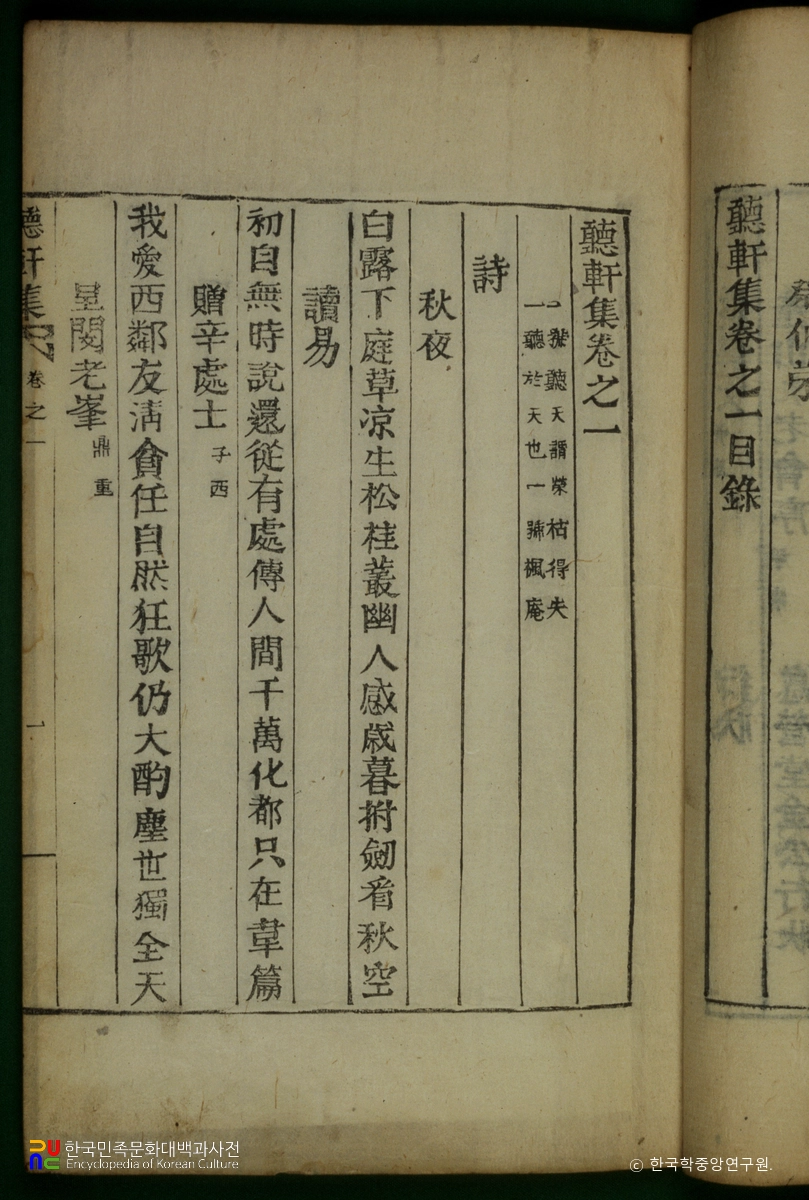 聽軒集卷之一目錄
聽軒集卷之一
一號聽天謂榮枯得失
一聽於天也一號楓庵
詩
秋夜
白露下庭草凉生松桂叢幽人感歲暮拊劒看秋空
讀易
初自無時說還從有處傳人間千萬化都只在韋篇
贈辛處士 子西
我愛西鄰友淸貧任自然狂歌仍大酌塵世獨全天
呈閔老峯 鼎重
聽軒集 卷之一 一
한국민족문화대백과사전
Encyclopedia of Korean Culture
ⓒ 한국학중앙연구원.